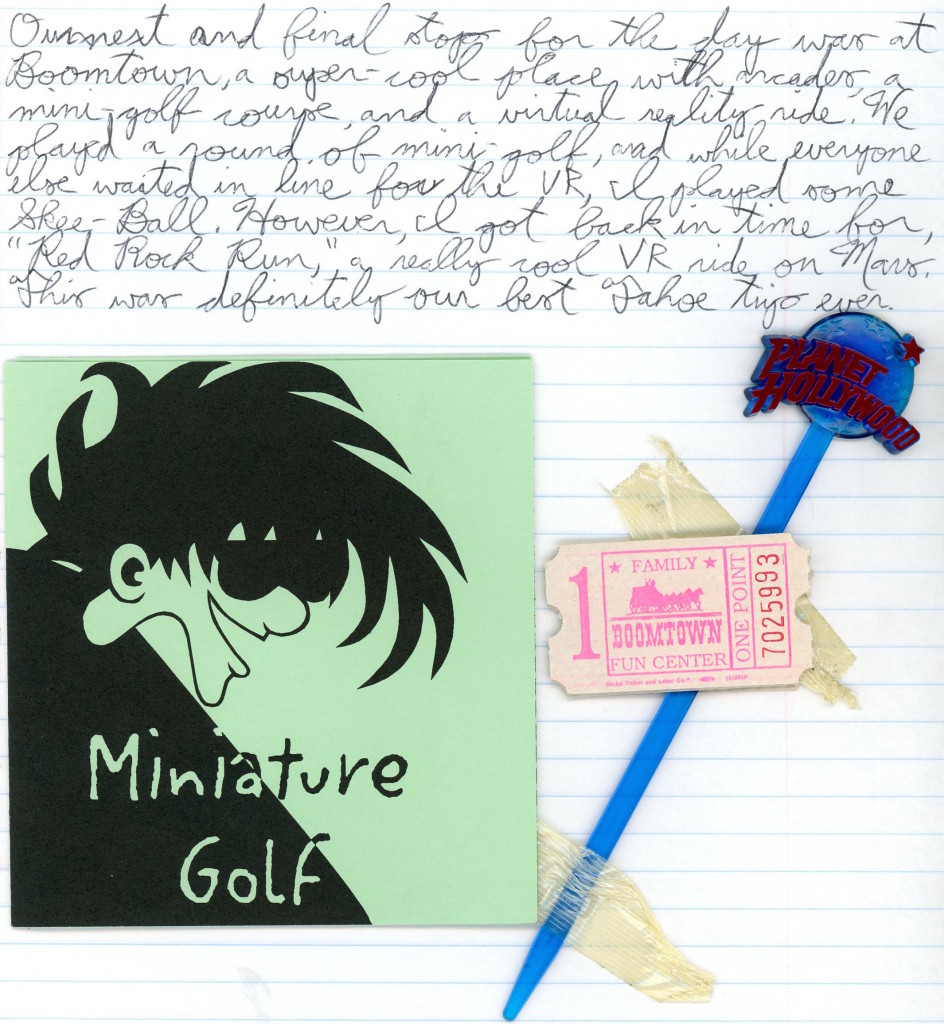 Our next and final stop for the day was at
Boomtown, a super-cool place with arcades, a
mini-golf course, and a virtual reality ride. We
played a round of mini-golf, and while everyone
else waited in line for the VR, I played some
Skee-Ball. However, I got back in time for,
"Red Rock Run," a really cool VR ride on Mars.
This was definitely our best Tahoe trip ever.
PLANET
HOLLYWOOD
1
★ FAMILY ★
BOOMTOWN
FUN CENTER
ONE POINT
7025993
Globe Ticket and Label Co.
Miniature
Golf